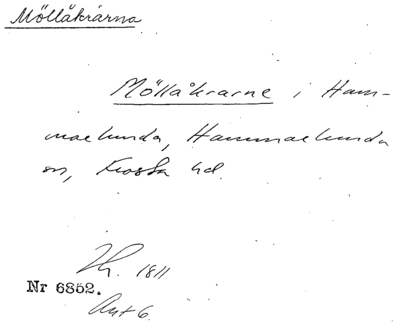 Möllåkrarna
Möllåkrarne i Ham-
marlunda, Hammarlunda
sn, Frosta hd.
1811
Nr 6852.
Akt 6.